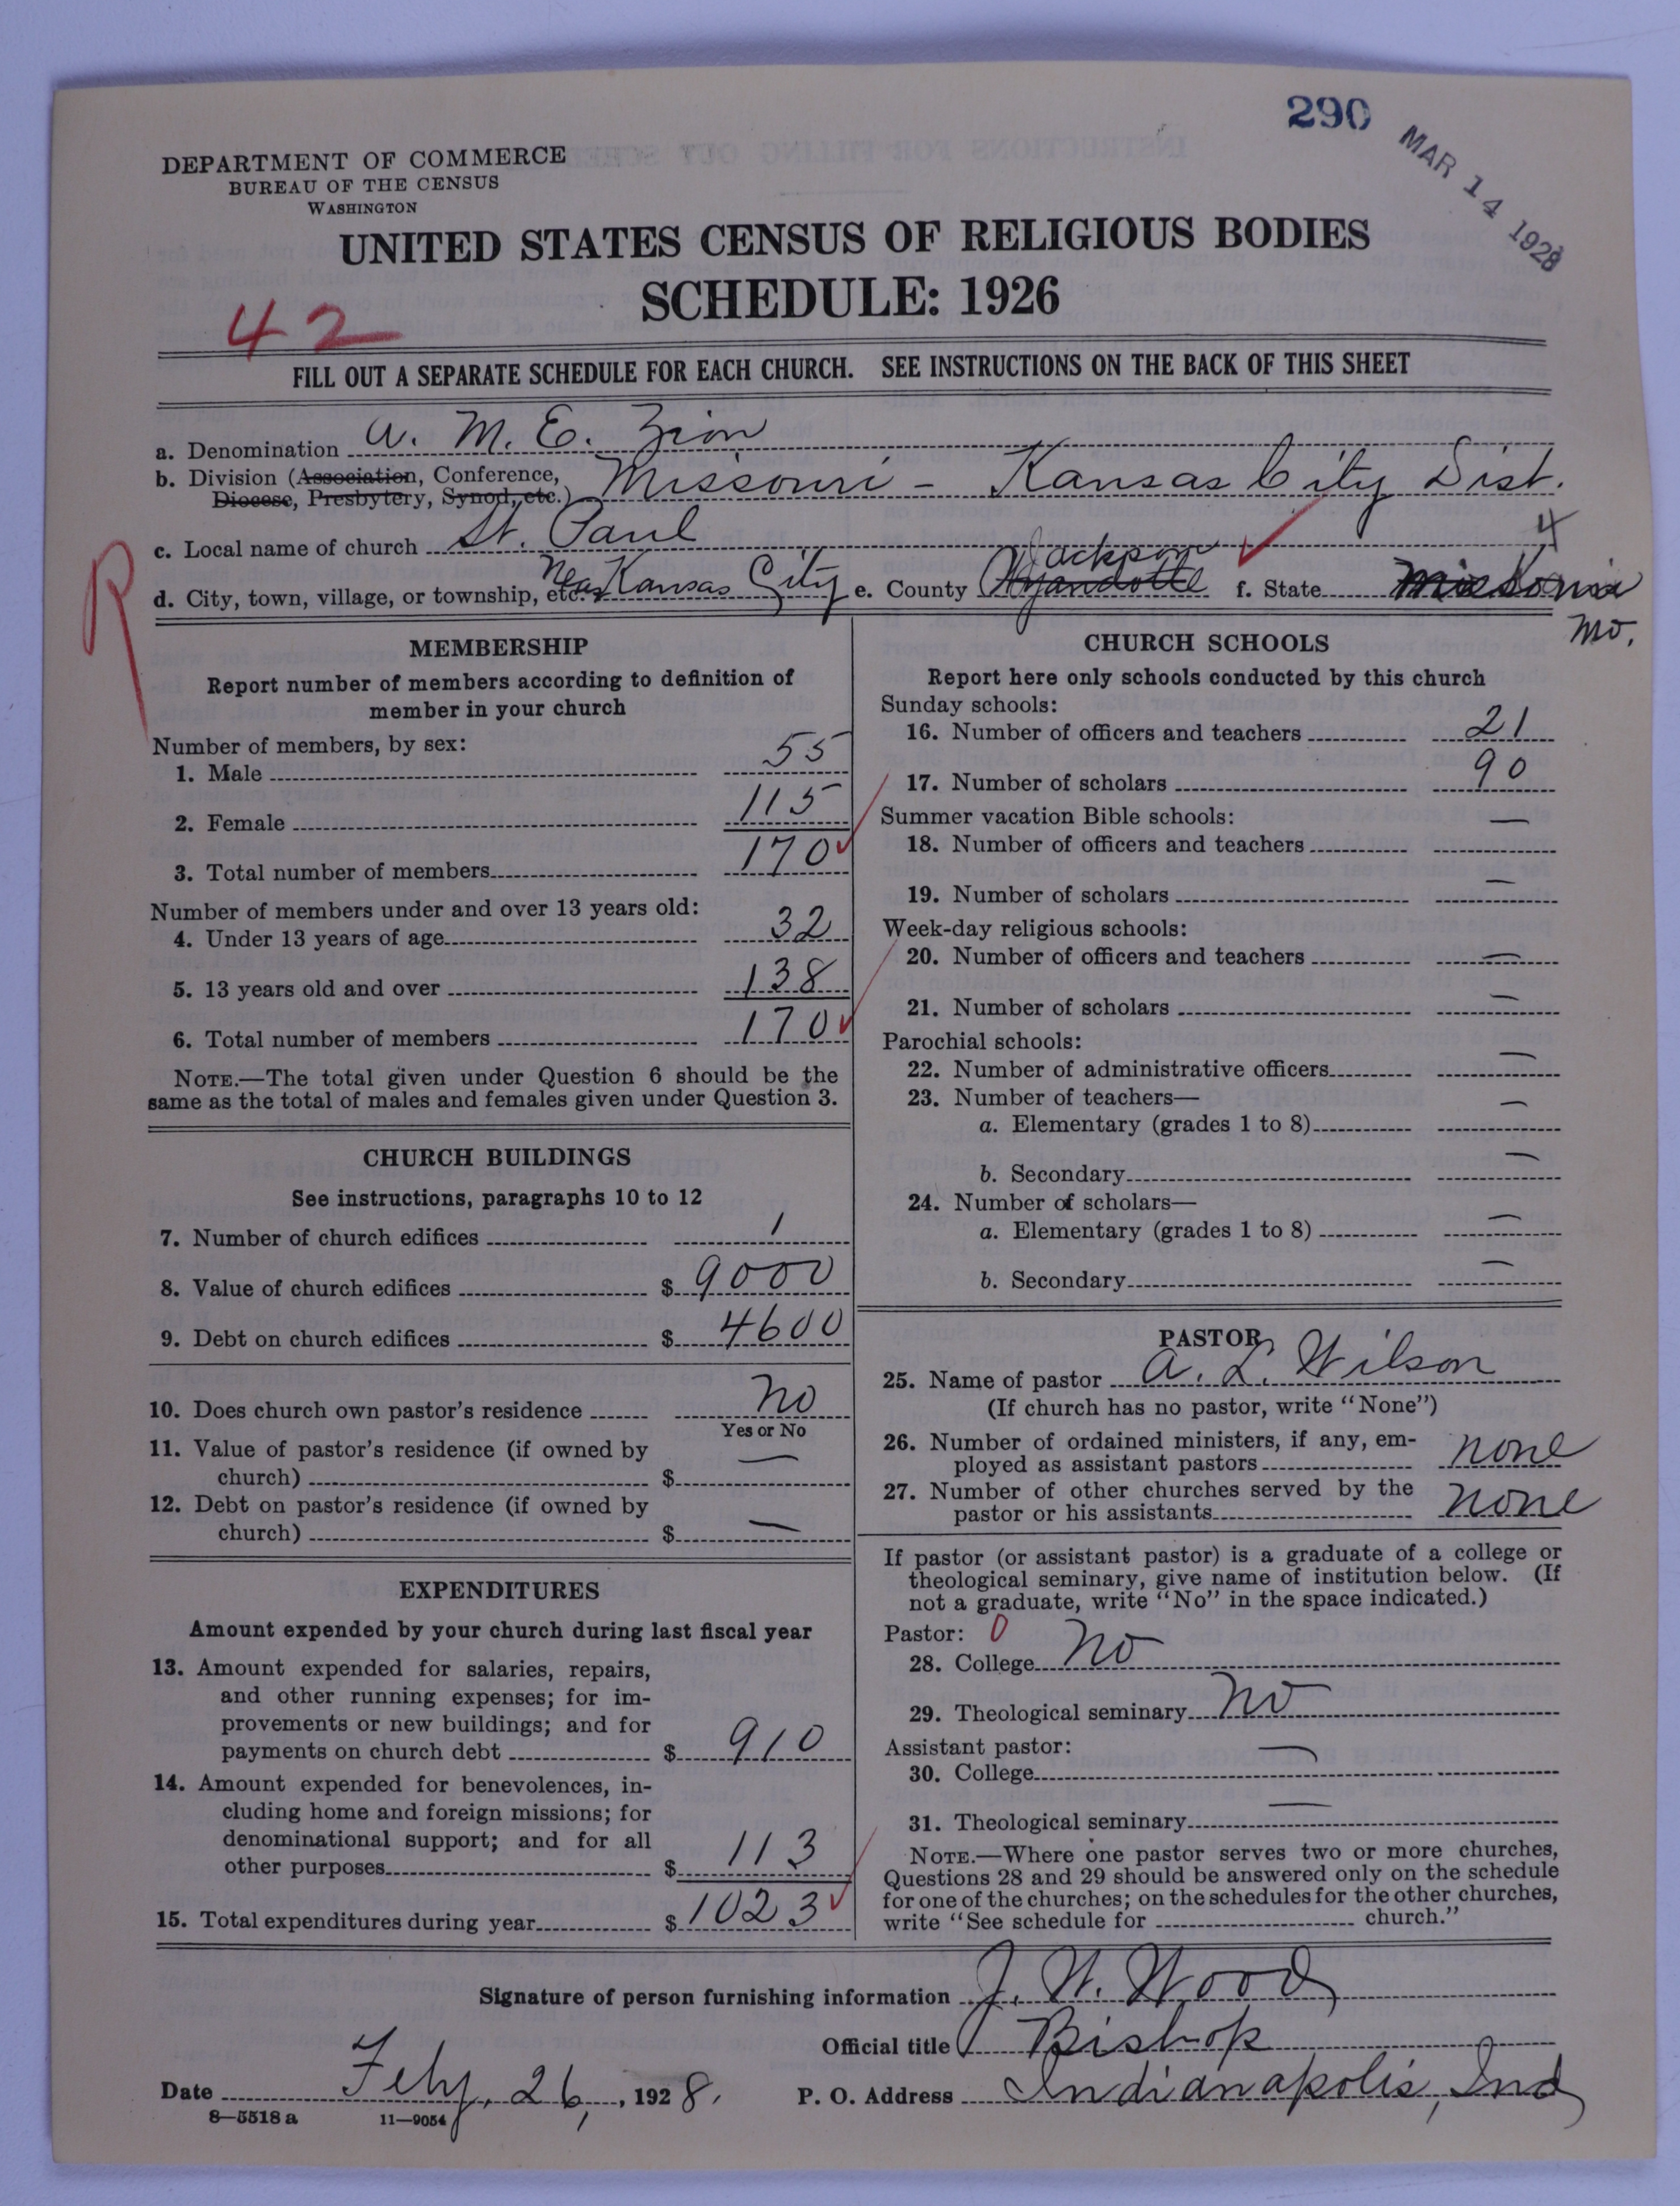 290
MAR 14 1928
DEPARTMENT OF COMMERCE
BUREAU OF THE CENSUS
WASHINGTON
UNITED STATES CENSUS OF RELIGIOUS BODIES
SCHEDULE: 1926
42
FILL OUT A SEPARATE SCHEDULE FOR EACH CHURCH. SEE INSTRUCTIONS ON THE BACK OF THIS SHEET
a. Denomination A. M. E. Zion
b. Division (Association, Conference, Diocese, Presbytery, Synod, etc.) Missouri - Kansas City Dist.
c. Local name of church St. Paul
4
d. City, town, village, or township, etc. Near Kansas City e. County Wyandotte Jackson f. State
Mo.
R
MEMBERSHIP
Report number of members according to definition of
member in your church
Number of members, by sex:
1. Male 55
2. Female 115
3. Total number of members 170
Number of members under and over 13 years old:
4. Under 13 years of age 32
5. 13 years old and over 138
6. Total number of members 170
NOTE.—The total given under Question 6 should be the
same as the total of males and females given under Question 3.
CHURCH BUILDINGS
See instructions, paragraphs 10 to 12
7. Number of church edifices 1
8. Value of church edifices $ 9000
9. Debt on church edifices $ 4600
10. Does church own pastor's residence No
Yes or No
11. Value of pastor's residence (if owned by
church) $ —
12. Debt on pastor's residence (if owned by
church) $ —
EXPENDITURES
Amount expended by your church during last fiscal year
13. Amount expended for salaries, repairs,
and other running expenses; for im-
provements or new buildings; and for
payments on church debt $ 910
14. Amount expended for benevolences, in-
cluding home and foreign missions; for
denominational support; and for all
other purposes $ 113
15. Total expenditures during year $ 1023
CHURCH SCHOOLS
Report here only schools conducted by this church
Sunday schools:
16. Number of officers and teachers 21
17. Number of scholars 90
Summer vacation Bible schools:
18. Number of officers and teachers —
19. Number of scholars —
Week-day religious schools:
20. Number of officers and teachers —
21. Number of scholars —
Parochial schools:
22. Number of administrative officers —
23. Number of teachers—
a. Elementary (grades 1 to 8) —
b. Secondary —
24. Number of scholars—
a. Elementary (grades 1 to 8) —
b. Secondary —
PASTOR
25. Name of pastor A. L. Wilson
(If church has no pastor, write "None")
26. Number of ordained ministers, if any, em-
ployed as assistant pastors none
27. Number of other churches served by the
pastor or his assistants none
If pastor (or assistant pastor) is a graduate of a college or
theological seminary, give name of institution below. (If
not a graduate, write "No" in the space indicated.)
Pastor: 0
28. College No
29. Theological seminary No
Assistant pastor:
30. College —
31. Theological seminary —
NOTE.—Where one pastor serves two or more churches,
Questions 28 and 29 should be answered only on the schedule
for one of the churches; on the schedules for the other churches,
write "See schedule for church."
Signature of person furnishing information J. W. Wood
Official title Bishop
Date Feby. 26, 1928. P. O. Address Indianapolis, Ind
8—5518 a 11—9054